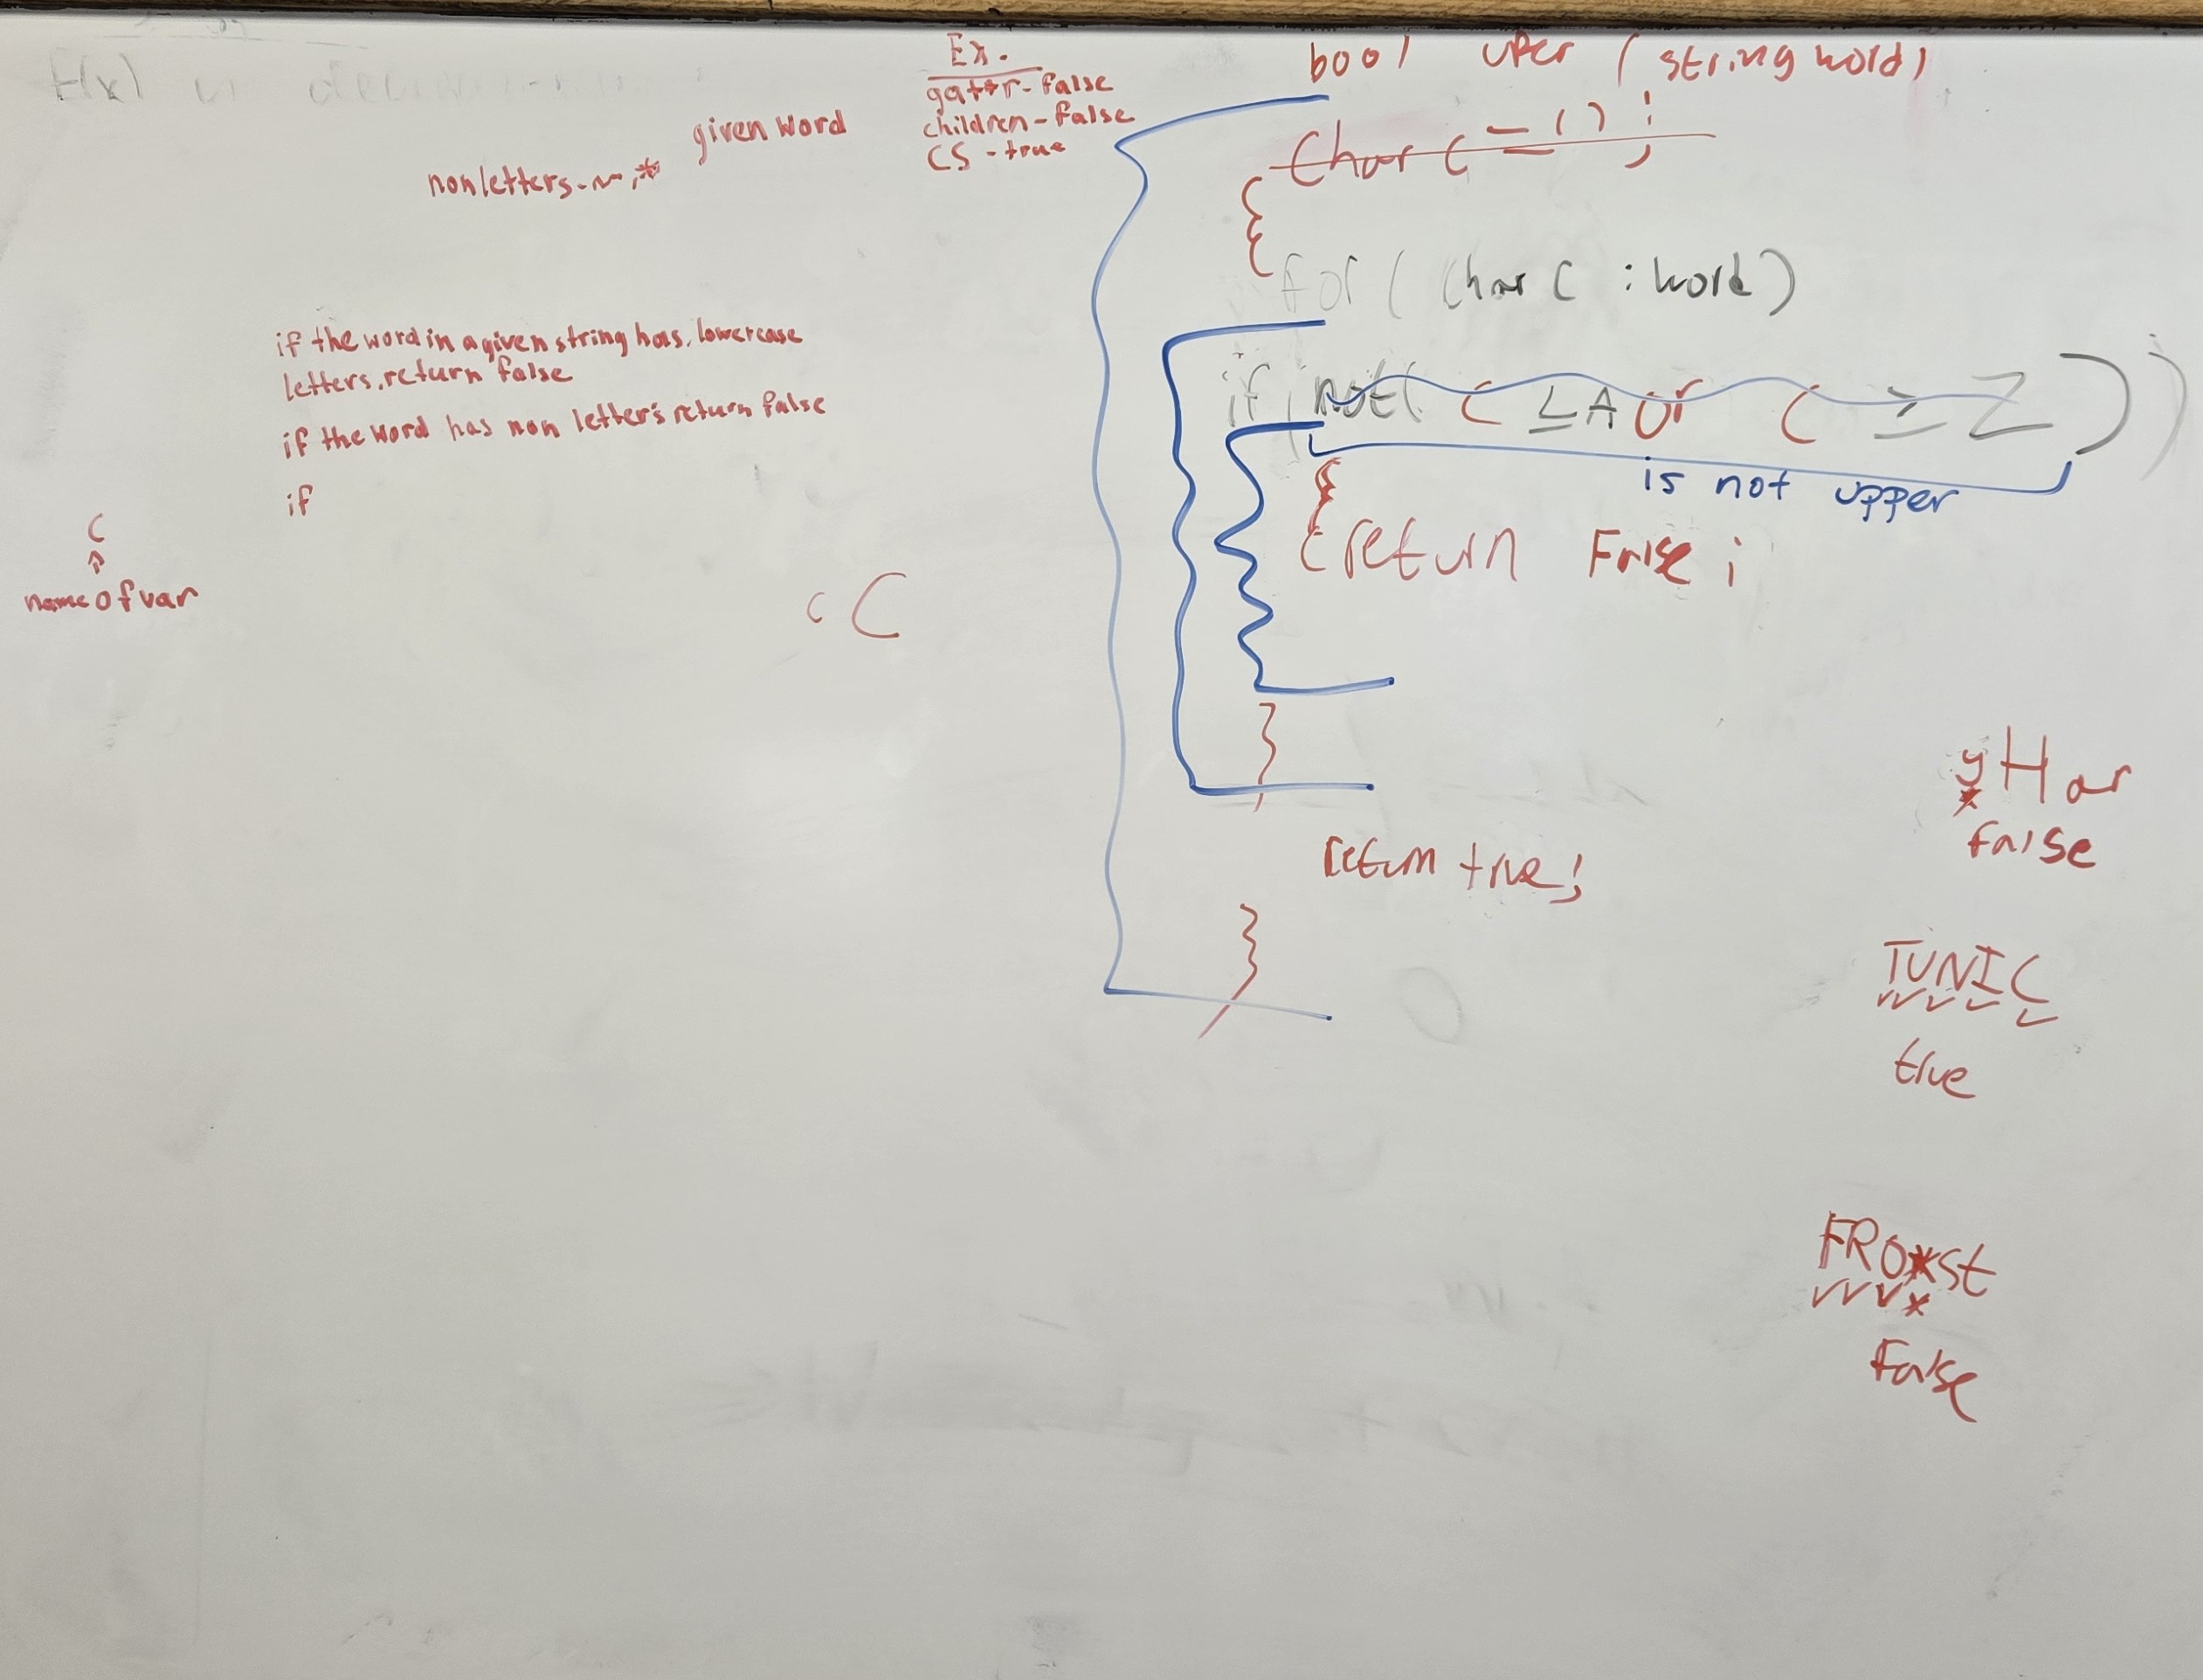 f(x)
given word
nonletters - ~ , *
Ex.
gator - false
children - false
CS - true
if the word in a given string has lowercase
letters, return false
if the word has non letter's return false
if
C
name of var
c C
bool uper (string word)
Char C = ' ' ;
{
for ( Char C : word)
if ( not( C ≤ A or C ≥ Z ) )
is not upper
{
return False ;
}
return true;
}
yHar
false
TUNIC
true
FRO*St
False